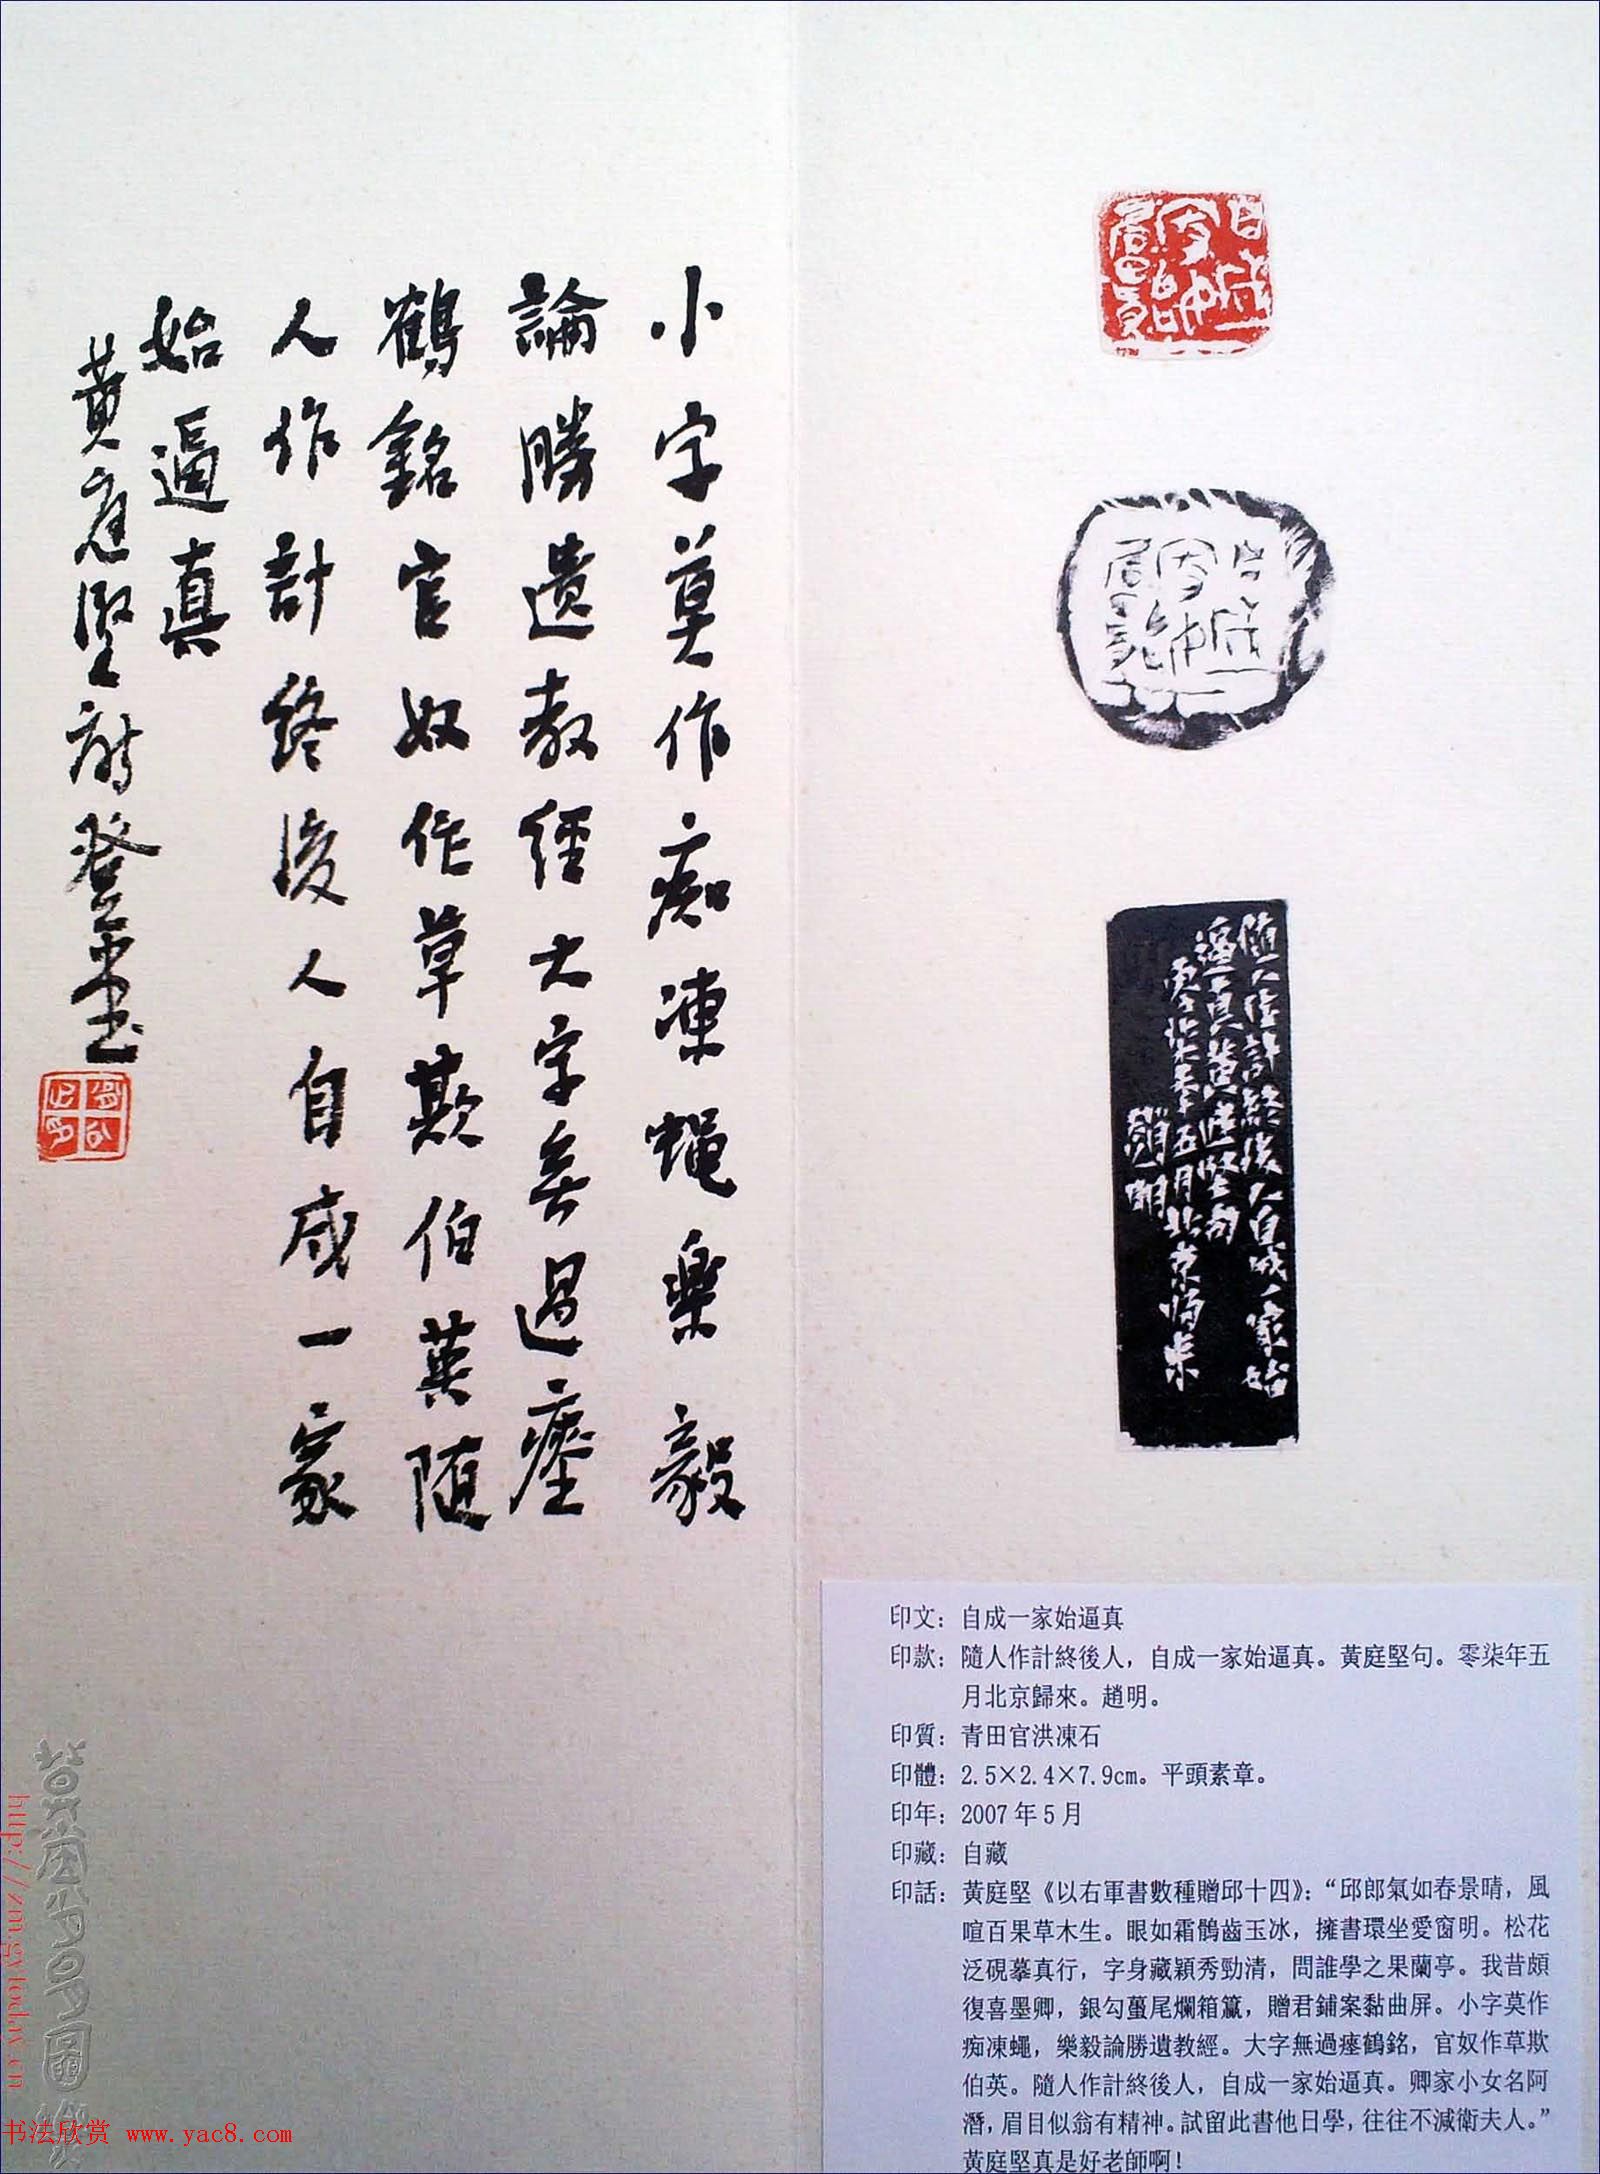 小字莫作痴凍蠅樂毅
論勝遺教經大字無過瘞
鶴銘官奴作草欺伯英隨
人作計終後人自成一家
始逼真
黃庭堅詩登平書
隨人作計終後人自成一家始
逼真黃庭堅句
零柒年五月北京歸來
趙明
印文：自成一家始逼真
印款：隨人作計終後人，自成一家始逼真。黃庭堅句。零柒年五
月北京歸來。趙明。
印質：青田官洪凍石
印體：2.5×2.4×7.9cm。平頭素章。
印年：2007年5月
印藏：自藏
印話：黃庭堅《以右軍書數種贈邱十四》：“邱郎氣如春景晴，風
暄百果草木生。眼如霜鶻齒玉冰，擁書環坐愛窗明。松花
泛硯摹真行，字身藏穎秀勁清，問誰學之果蘭亭。我昔頗
復喜墨卿，銀勾蠆尾爛箱籯，贈君鋪案黏曲屏。小字莫作
痴凍蠅，樂毅論勝遺教經。大字無過瘞鶴銘，官奴作草欺
伯英。隨人作計終後人，自成一家始逼真。卿家小女名阿
潛，眉目似翁有精神。試留此書他日學，往往不減衛夫人。”
黃庭堅真是好老師啊！
http://zm.gytoday.cn
书法欣赏 www.yac8.com